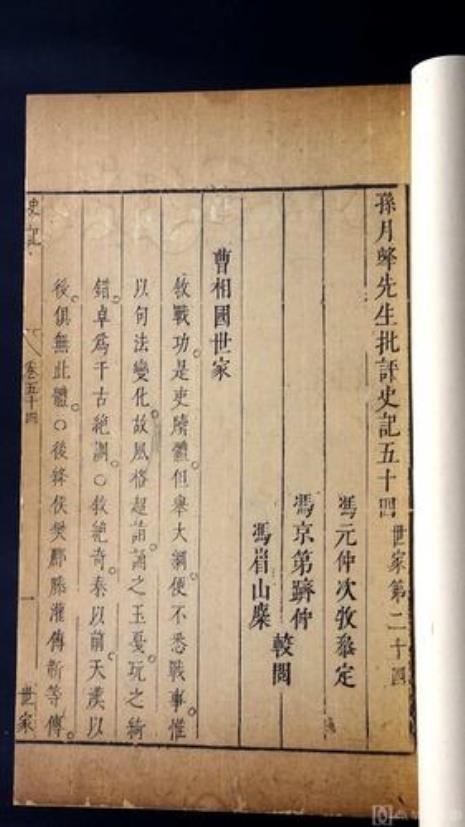 孫月峰先生批評史記五十四
世家第二十四
馮元仲次牧叅定
馮京第躋仲
馮眉山麋
較閱
曹相國世家
敘戰功是吏牘體但舉大綱便不悉戰事惟
以句法變化故風格超誦誦之玉戛玩之綺
錯卓為千古絕調○敘絕奇秦以前天漢以
後俱無此體○後絳侯樊酈滕灌傅靳等傳
史記
卷五十四
一
世家